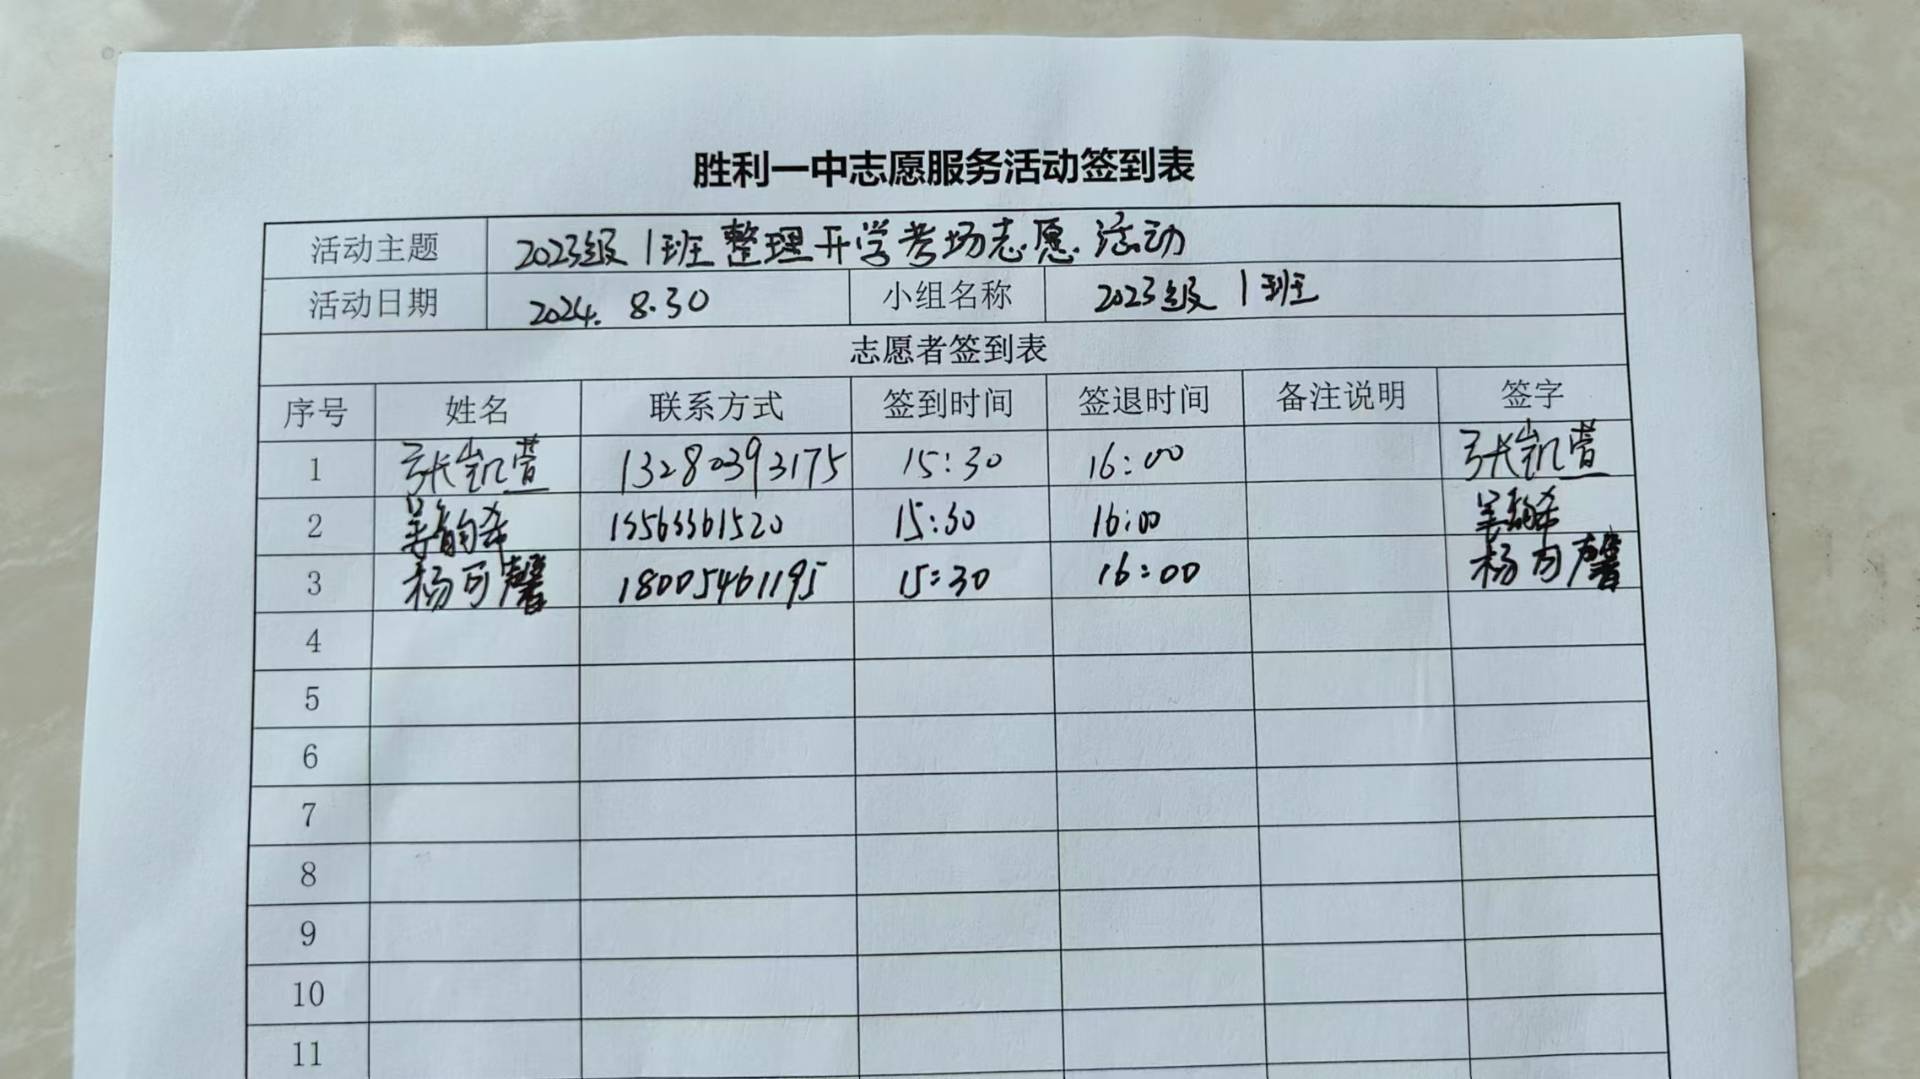 胜利一中志愿服务活动签到表
活动主题 2023级1班整理开学考场志愿活动
活动日期 2024.8.30 小组名称 2023级1班
志愿者签到表
序号 姓名 联系方式 签到时间 签退时间 备注说明 签字
1 张凯萱 13280393175 15:30 16:00 张凯萱
2 15563361520 15:30 16:00
3 杨可馨 18005461195 15:30 16:00 杨可馨
4
5
6
7
8
9
10
11